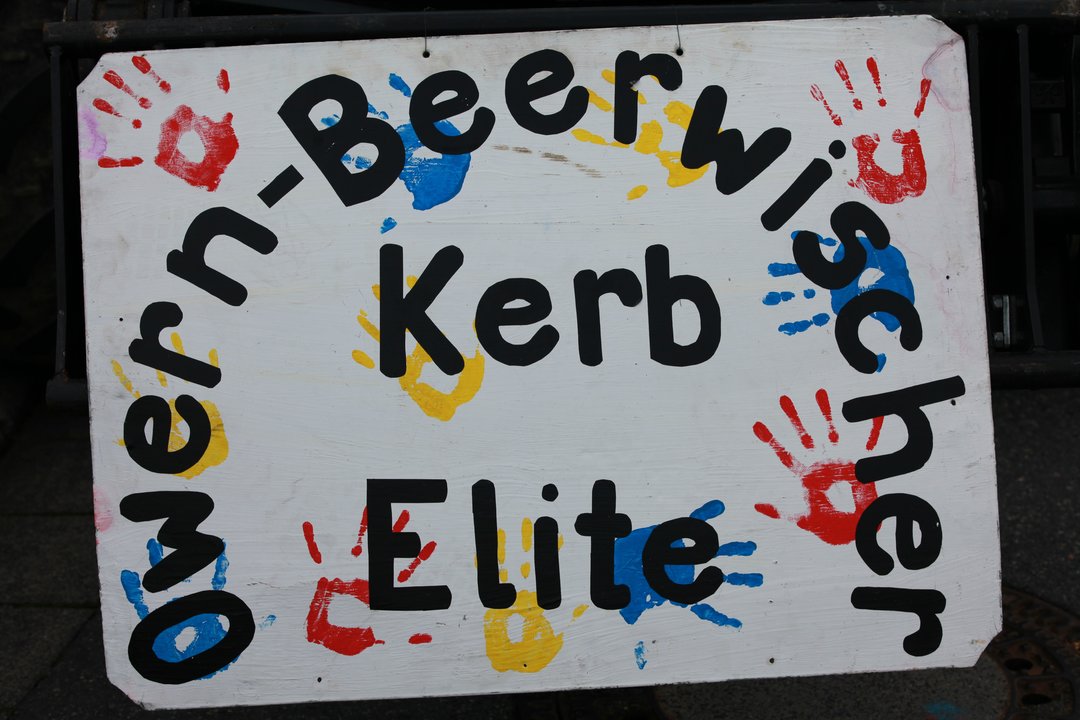 Owern-BeerWischer
Kerb
Elite